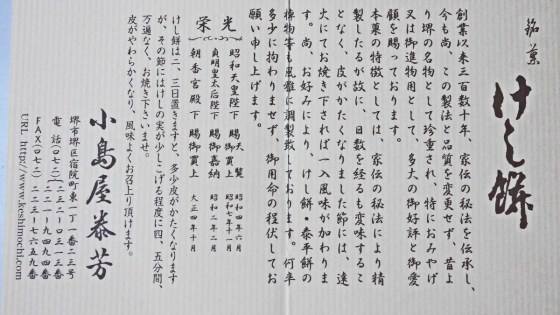 銘菓
けし餅
創業以来三百数十年、家伝の秘法を伝承し、
今も尚、この製法と品質を変更せず、昔よ
り堺の名物として珍重され、特におみやげ
又は御進物用として、多大の御好評と御愛
顧を賜っております。
本菓の特徴としては、家伝の秘法により精
製したるが故に、日数を経るも変味するこ
となく、皮がかたくなりました節には、遠
火にてお焼き下されば一入風味が加わりま
す。尚、お好みにより、けし餅・泰平餅の
棹物等も風雅に調製致しております。何卒
多少に拘わりませず、御用命の程伏してお
願い申し上げます。
栄光
昭和天皇陛下 賜天覧 昭和四年六月
賜御買上 昭和七年十一月
貞明皇太后陛下 賜御嘉納 昭和二年二月
朝香宮殿下 賜御買上 大正四年十月
けし餅は二、三日置きますと、多少皮がかたくなります
が、その節にはけしの実が少しこげる程度に四、五分間、
万遍なく、お焼き下さいませ。
皮がやわらかくなり、風味よくお召上り頂けます。
小島屋泰芳
堺市堺区宿院町東一丁一番二三号
電話(〇七二)二三二-〇三一三番
二二一-九四九四番
FAX(〇七二)二二三-七六五九番
URL http://www.keshimochi.com